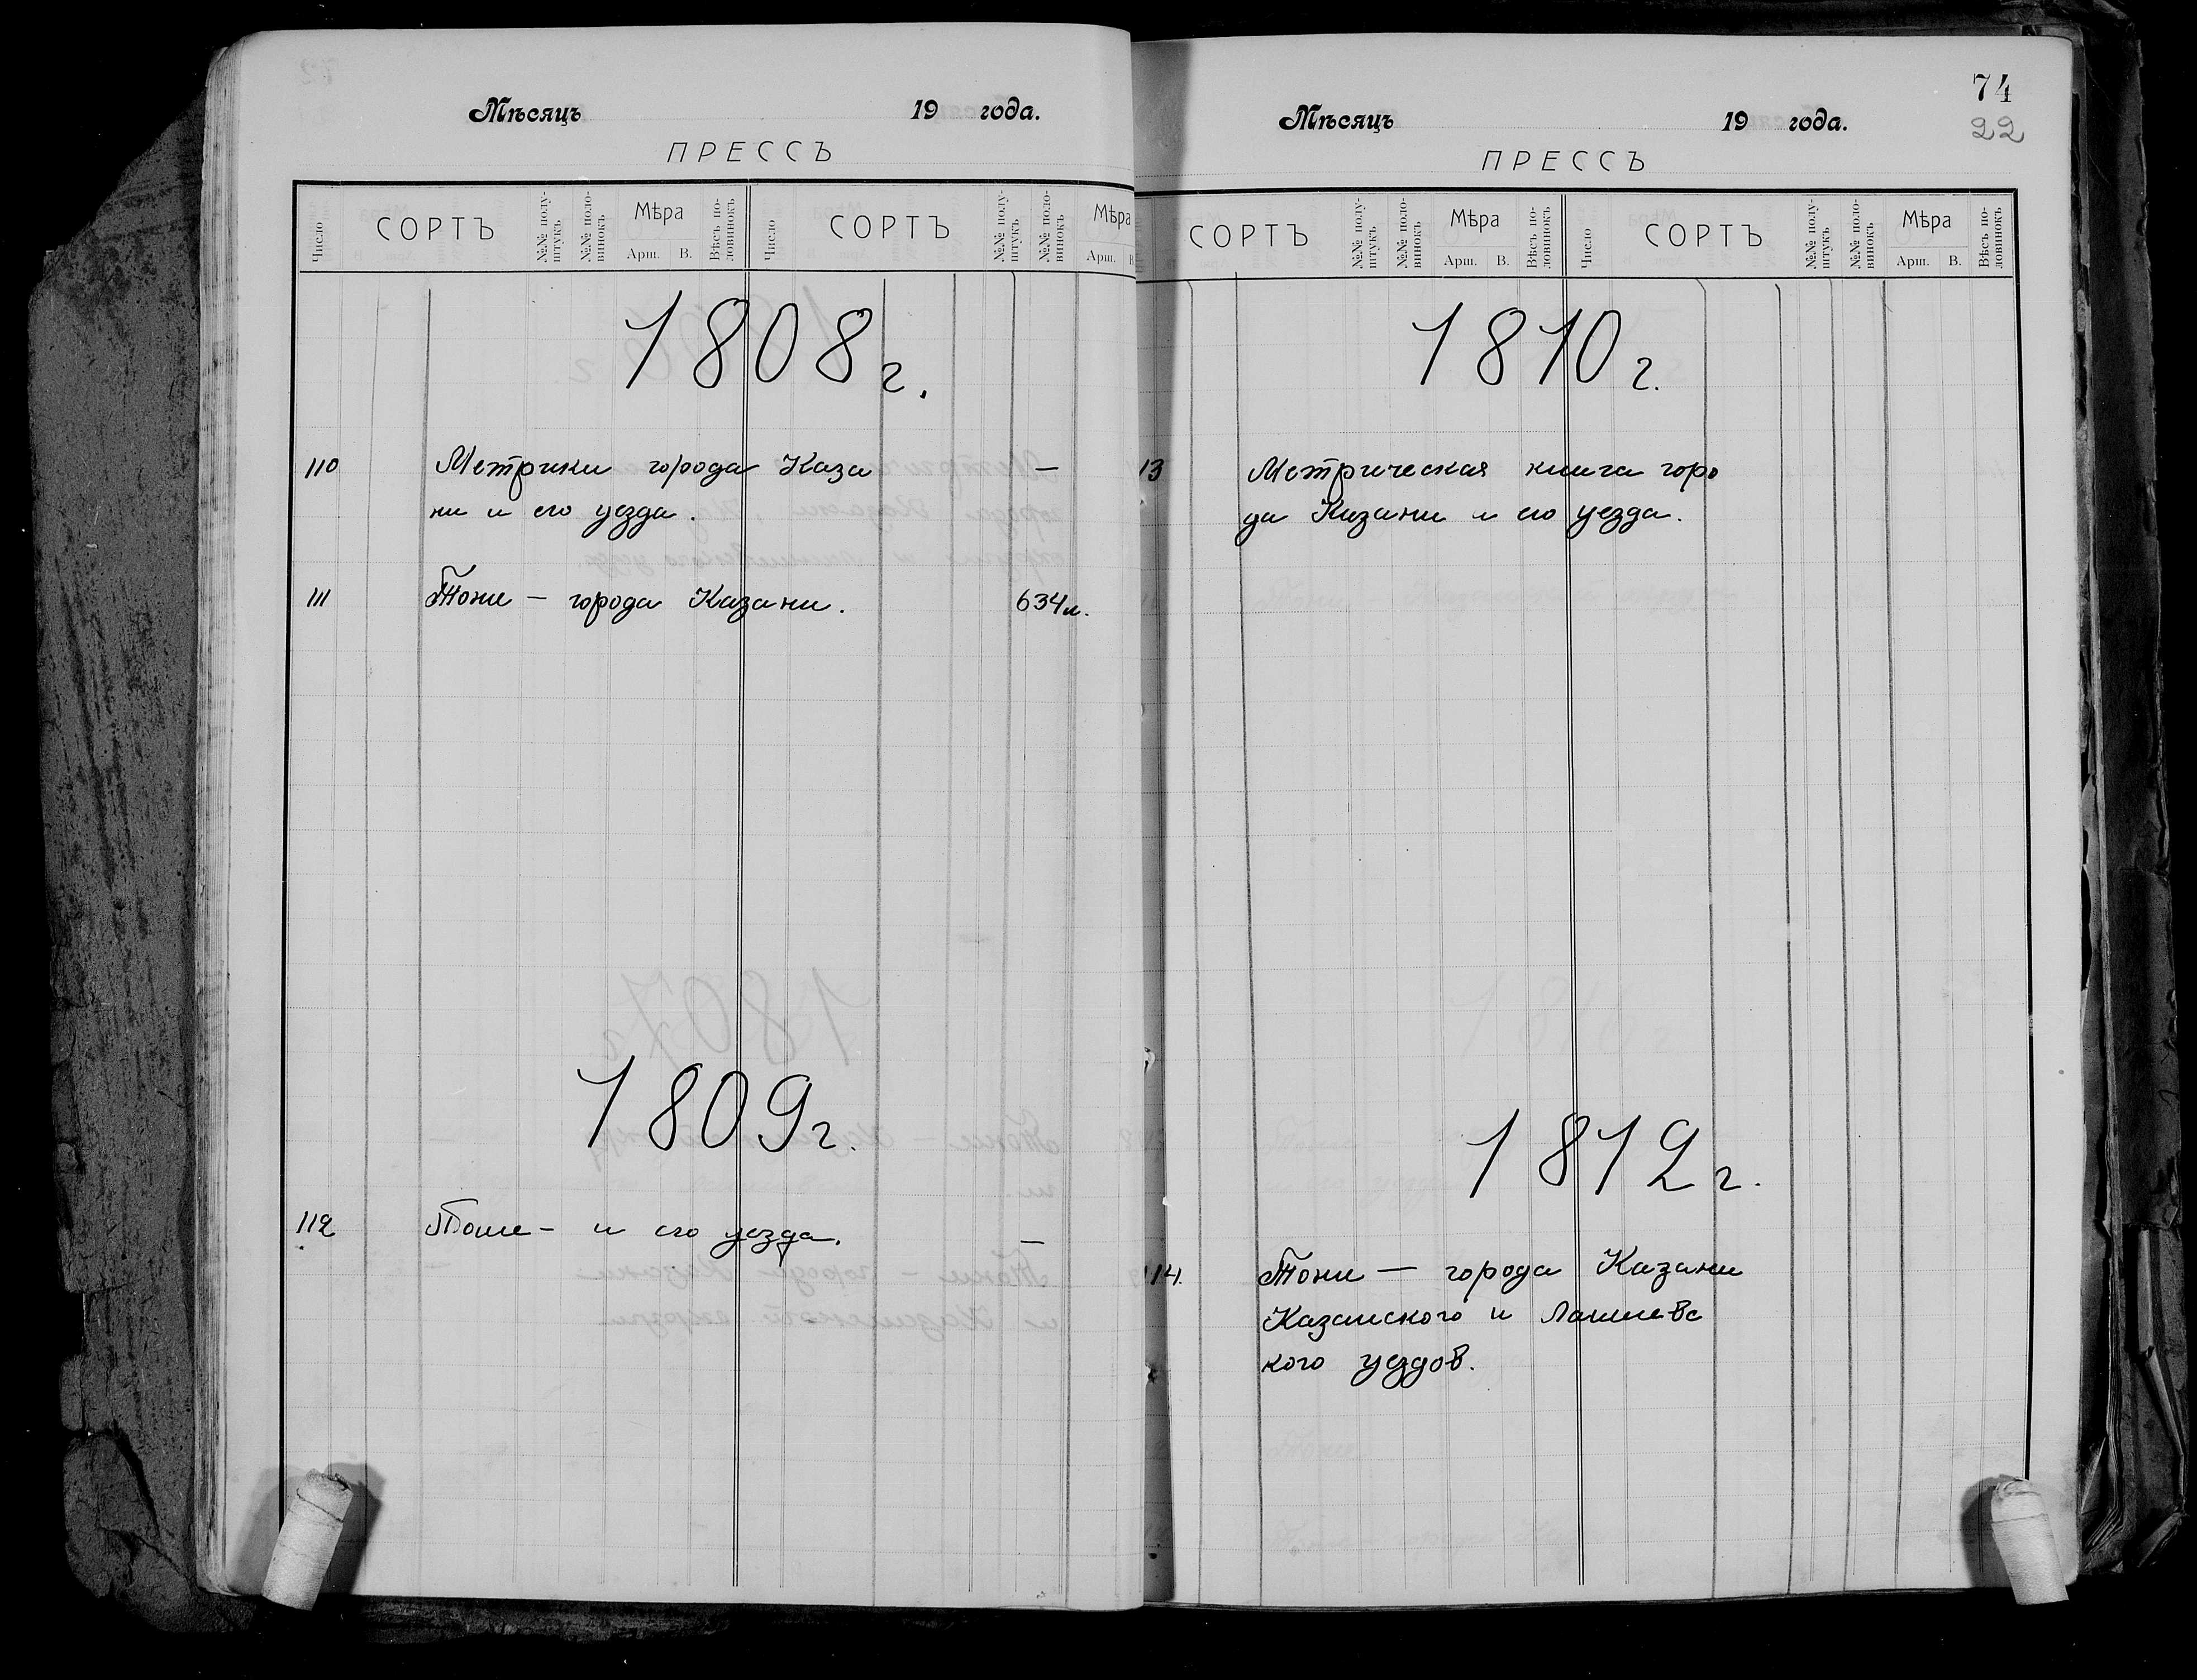 Мѣсяцъ 19 года.
ПРЕССЪ
Число СОРТЪ №№ полу-штукъ №№ поло-винокъ Мѣра Арш. В. Вѣсъ по-ловинокъ Число СОРТЪ №№ полу-штукъ №№ поло-винокъ Мѣра Арш. В
1808 г.
110 Метрики города Каза —
ни и его уезда.
111 Тоже — города Казани. 634 л.
1809 г.
112 Тоже — и его уезда. —
74
22
Мѣсяцъ 19 года.
ПРЕССЪ
СОРТЪ №№ полу-штукъ №№ поло-винокъ Мѣра Арш. В. Вѣсъ по-ловинокъ Число СОРТЪ №№ полу-штукъ №№ поло-винокъ Мѣра Арш. В. Вѣсъ по-ловинокъ
1810 г.
13 Метрическая книга горо
да Казани и его уезда.
1812 г.
114. Тоже — города Казани
Казанского и Лаишевс
кого уездов.